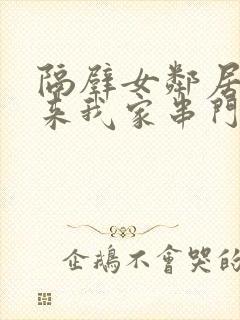 隔壁女鄰居
来我家串門
企鵝不會哭的